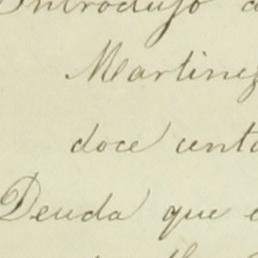 Introdujo a
Martinez
doce centa
Deuda que e